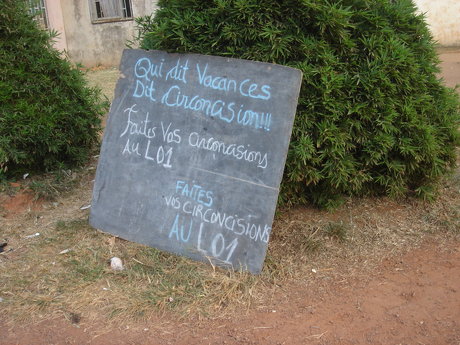 Qui dit Vacances
Dit Circoncasion!!!
Faites Vos circoncasions
Au LO1
FAITES
VOS CIRCONCISIONS
AU LO1